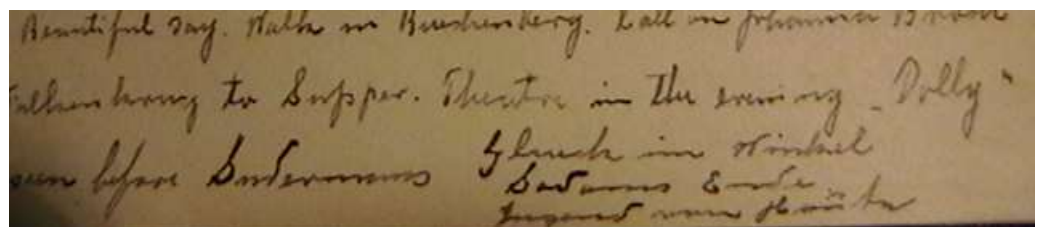 Beautiful day. Walk in Bueckenberg. Call on Johanna
to Supper. Theatre in the evening "Dolly"
seen before Sudermanns Glück im Winkel
Sodoms Ende
Jugend von Heute